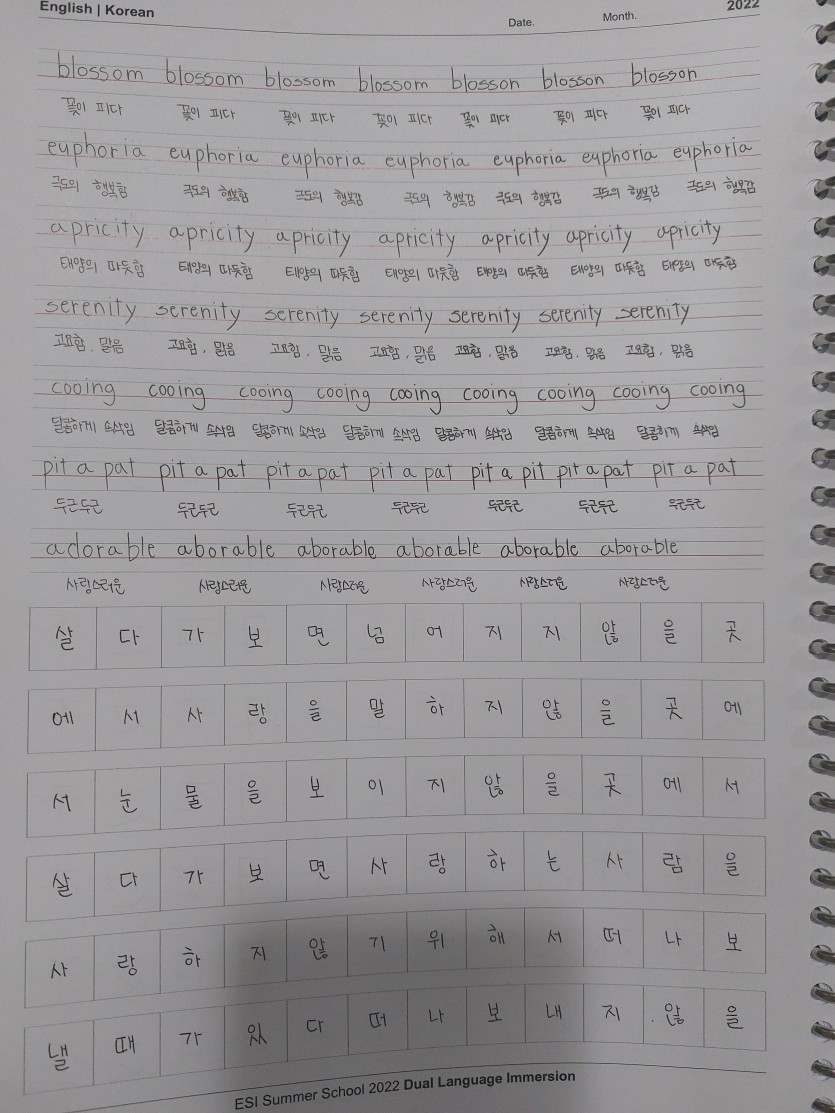 English | Korean Date. Month. 2022
blossom blossom blossom blossom blosson blosson blosson
꽃이 피다 꽃이 피다 꽃이 피다 꽃이 피다 꽃이 피다 꽃이 피다 꽃이 피다
euphoria euphoria euphoria euphoria euphoria euphoria euphoria
극도의 행복함 극도의 행복함 극도의 행복감 극도의 행복감 극도의 행복감 극도의 행복감 극도의 행복감
apricity apricity apricity apricity apricity apricity apricity
태양의 따뜻함 태양의 따뜻함 태양의 따뜻함 태양의 따뜻함 태양의 따뜻함 태양의 따뜻함 태양의 따뜻함
serenity serenity serenity serenity serenity serenity serenity
고요함, 맑음 고요함, 맑음 고요함, 맑음 고요함, 맑음 고요함, 맑음 고요함, 맑음 고요함, 맑음
cooing cooing cooing cooing cooing cooing cooing cooing cooing
달콤하게 속삭임 달콤하게 속삭임 달콤하게 속삭임 달콤하게 속삭임 달콤하게 속삭임 달콤하게 속삭임 달콤하게 속삭임
pit a pat pit a pat pit a pat pit a pat pit a pit pit a pat pit a pat
두근두근 두근두근 두근두근 두근두근 두근두근 두근두근 두근두근
adorable aborable aborable aborable aborable aborable
사랑스러운 사랑스러운 사랑스러운 사랑스러운 사랑스러운 사랑스러운
살 다 가 보 면 넘 어 지 지 않 을 곳
에 서 사 랑 을 말 하 지 않 을 곳 에
서 눈 물 을 보 이 지 않 을 곳 에 서
살 다 가 보 면 사 랑 하 는 사 람 을
사 랑 하 지 않 기 위 해 서 떠 나 보
낼 때 가 있 다 떠 나 보 내 지 않 을
ESI Summer School 2022 Dual Language Immersion